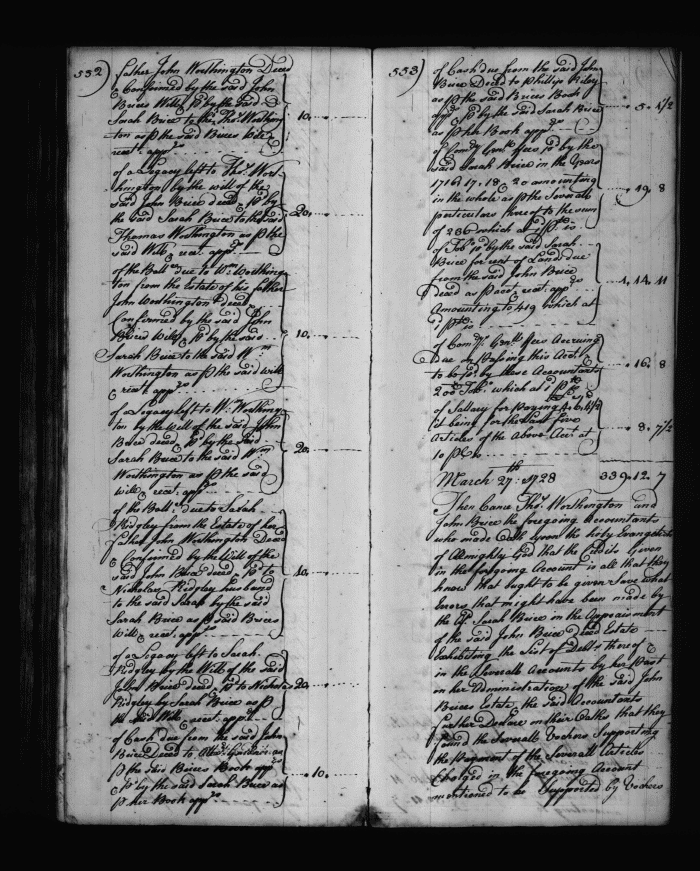 552)
father John Worthington Deced
& Confirmed by the said John
Brices Will, pd by the said
Sarah Brice to the Thos Worthing
ton as p the said Brices Will &
rect appr 10.
of a Legacy left to Thos Wor-
thington by the will of the
said John Brice deced, pd by
the said Sarah Brice to the said 20.
Thomas Worthington as p the
said Will & rect appr
of the Ballce due to Wm Worthing
ton from the Estate of his father
John Worthington deced
Confirmed by the said John
Brices Will, pd by the said 10.
Sarah Brice to the said Wm
Worthington as p the said will
& rect appr
of a Legacy left to Wm Worthing
ton by the will of the said John
Brice deced, pd by the said
Sarah Brice to the said Wm 20.
Worthington as p the said
will & rect appr
of the Ballce due to Sarah
Ridgley from the Estate of her
father John Worthington Deced
& Confirmed by the Will of the
said John Brice deced, pd to 10.
Nicholas Ridgley husband
to the said Sarah by the said
Sarah Brice as p said Brices
Will & rect appr
of a Legacy left to Sarah
Ridgley by the Will of the said
John Brice deced, pd to Nicholas 20.
Ridgley by Sarah Brice as p
the said Will & rect appr
of Cash due from the said John
Brice Deced to as
p the said Brices Book appr 10.
& pd by the said Sarah Brice as
p her Book appr
553)
of Cash due from the said John
Brice Deced to Phillip Riley
as p the said Brices Book
appr & pd by the said Sarah Brice 5. 4 1/2
as p her Book appr
of fees pd by the
said Sarah Brice in the Years
1716, 17, 18, & 20 amounting 19. 8
in the whole as p the Severall
perticulers thereof to the sum
of 236 which at 1d p is
of Tobo pd by the said Sarah
Brice for rent of Land due
from the said John Brice 1. 14. 11
Deced as p acct & rect appr
Amounting to 419 which at
1d p is
of fees Accruing
Due on Passing this Acct &
to be pd by these Accountants 16. 8
200 Tobo which at 1d p
of Salary for paying
it being for the last five
Articles of the Above Acct at 8. 7 1/2
10 p Ct is
March 27th 1728 339. 12. 7
Then Came Thos Worthington and
John Brice the foregoing Accountants
who made Oath upon the holy Evangelists
of Almighty God that the Credits Given
in the foregoing Account is all that they
know that ought to be given Save what
Errors that might have been made by
the sd Sarah Brice in the Appraisment
of the said John Brice deced Estate
Exhibiting the List of Debts thereof
in the Severall Accounts by her Past
on her Administration of the said John
Brices Estate, the said Accountants
farther Declare on their Oaths that they
found the Severall Vochers Supporting
the Payment of the Severall Articles
Charged in the foregoing Account
mentioned to be Supported by Vochers